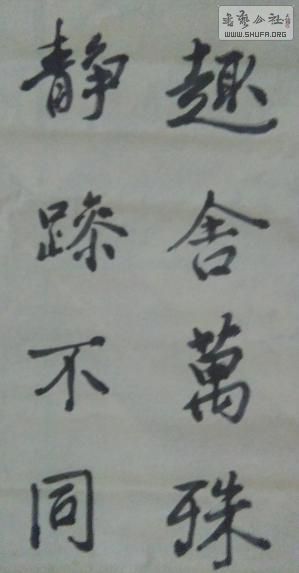 书艺公社
WWW.SHUFA.ORG
趣舍萬殊
静躁不同